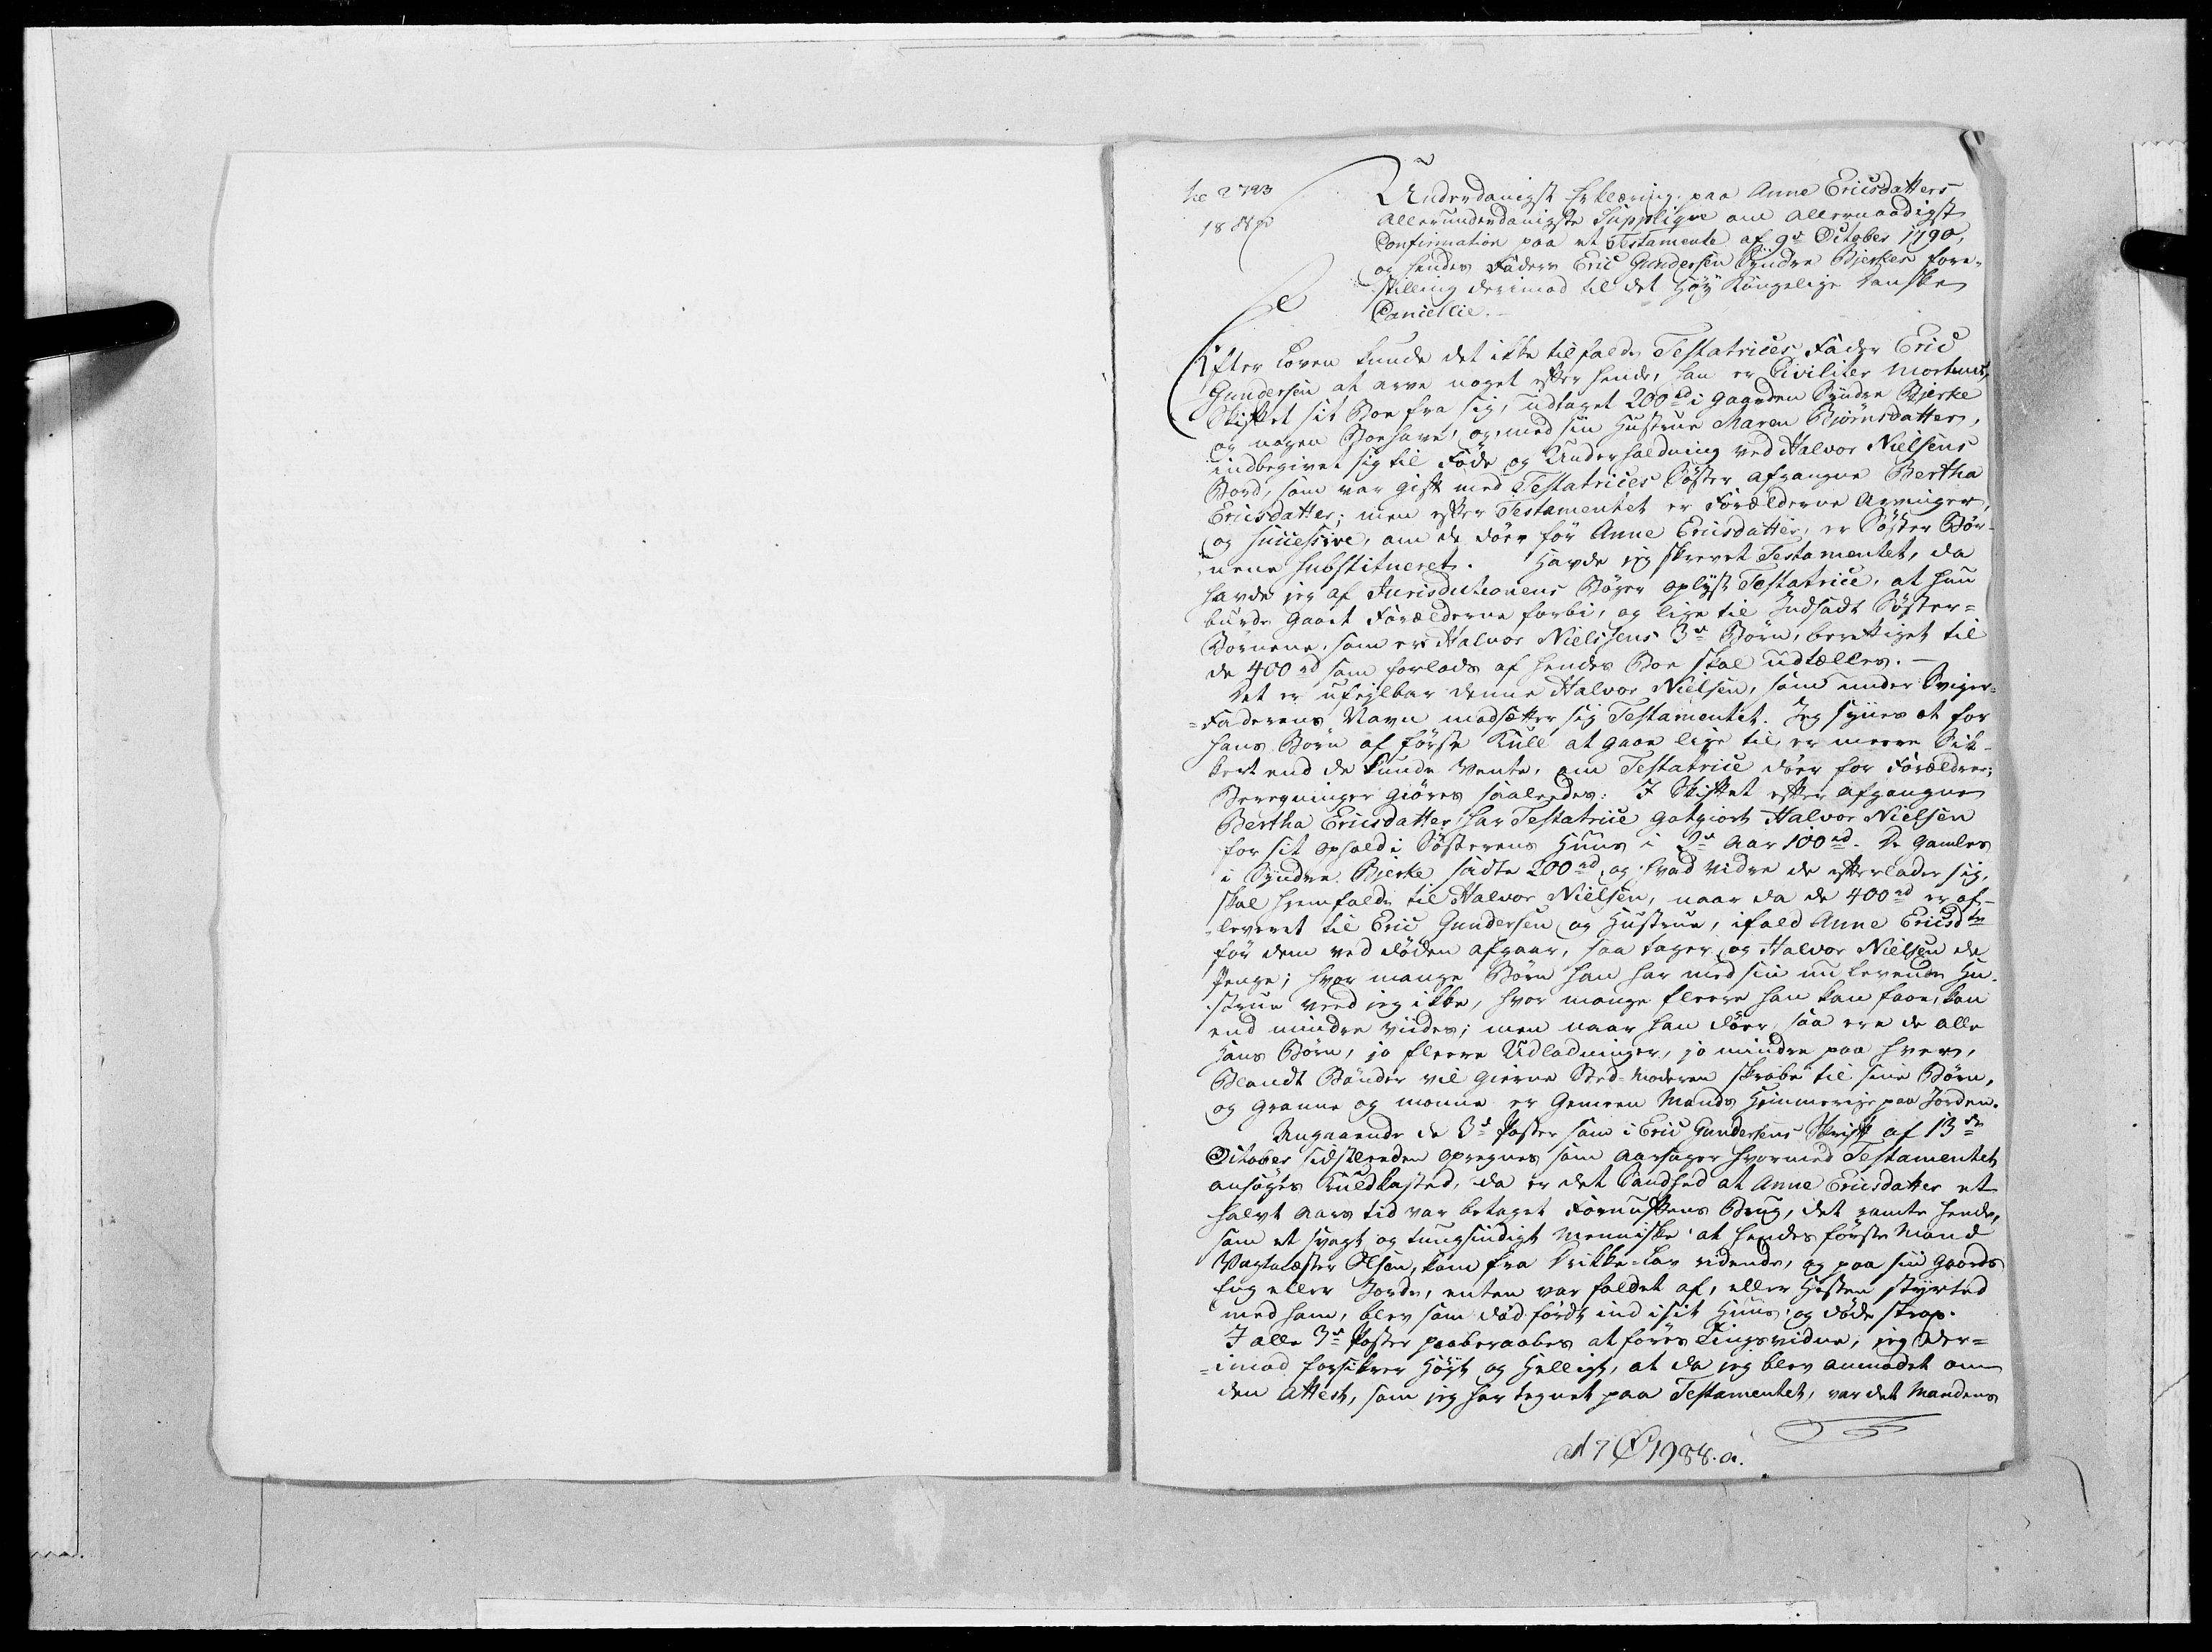 No 2793
Underdanigst Erklæring paa Anne Ericsdatters
Allerunderdanigste Supplique om Allernaadigst
Confirmation paa et Testamente af 9de October 1790,
og hendes Faders Eric Gundersen Syndre Bjerkes fore-
stilling derimod til det Høy Kongelige Danske
Cancellie.
Efter Loven kunde det ikke tilfalde Testatrices Fader Eric
Gundersen at arve noget efter hende, han er Civiliter mortuus,
Skiftet sit Boe fra sig, udtaget 200rd i Gaarden Syndre Bjerke
og nogen Boehave, og med sin Hustrue Maren Bjørnsdatter,
indbegivet sig til Føde og Underholdning ved Halvor Nielsens
Bord, som var gift med Testatrices Søster afgangne Bertha
Ericsdatter; men efter Testamentet er Forældrene Arvinger,
og successive, om de døer før Anne Ericsdatter, er Søster Bør-
nene substitueret. Havde jeg skrevet Testamentet, da
havde jeg af Jurisdictionens Bøger oplyst Testatrice, at hun
burde gaaet Forældrene forbi, og lige til Indsadt Søster=
Børnene, som er Halvor Nielsens 3de Børn, berettiget til
de 400rd som forlods af hendes Boe skal udtælles. –
Det er ufejlbar denne Halvor Nielsen, som under Sviger=
=Faderens Navn modsætter sig Testamentet. Jeg synes at for
hans Børn af første Kull at gaae lige til er meere Sik-
kert end de kunde vente, om Testatrice døer for Forældrene;
Beregninger giøres saaledes: I Skiftet efter afgangne
Bertha Ericsdatter har Testatrice godgiort Halvor Nielsen
for sit ophold i Søsterens Huus i 2de Aar 100rd. De Gamles
i Syndre Bjerke sadte 200rd, og hvad videre de efterlader sig,
skal hiemfalde til Halvor Nielsen, naar da de 400rd er af-
leveret til Eric Gundersen og Hustrue, ifald Anne Ericsdtr
før dem ved døden afgaar, saa tager og Halvor Nielsen de
Penge; hvor mange Børn han har med sin nu levende Hu-
strue veed jeg ikke, hvor mange fleere han kan faae, kan
end mindre viides; men naar han døer saa ere de alle
Hans Børn, jo fleere Udlodninger, jo mindre paa hver,
Blandt Bønder vil gierne Sted-Moderen skrabe til sine Børn,
og Granne og manne er Gemeen Mands Himmerige paa Jorden.
Angaaende de 3de Poster som i Eric Gundersens Skrift af 13de
October sidstleeden opregnes som Aarsager hvormed Testamentet
ansøges Kuldkasted, da er det Sandhed at Anne Ericsdatter et
halvt Aars tid var betaget Fornuftens Brug, det ramte hende,
som et svagt og tungsindigt Menniske at hendes første Mand
Vagtmester Olsen, kom fra Drikke-Lav ridende, og paa sin Gaards
Eng eller Jorde, enten var faldet af, eller Hesten styrted
med ham, blev som død førdt ind i sit Huus, og døde strax.
I alle 3de Poster paaberaabes at føres Tingsvidne, jeg der=
=imod forsikrer Høyt og Helligt, at da jeg blev anmodet om
den Attest, som jeg har tegnet paa Testamentet, var det Mandens